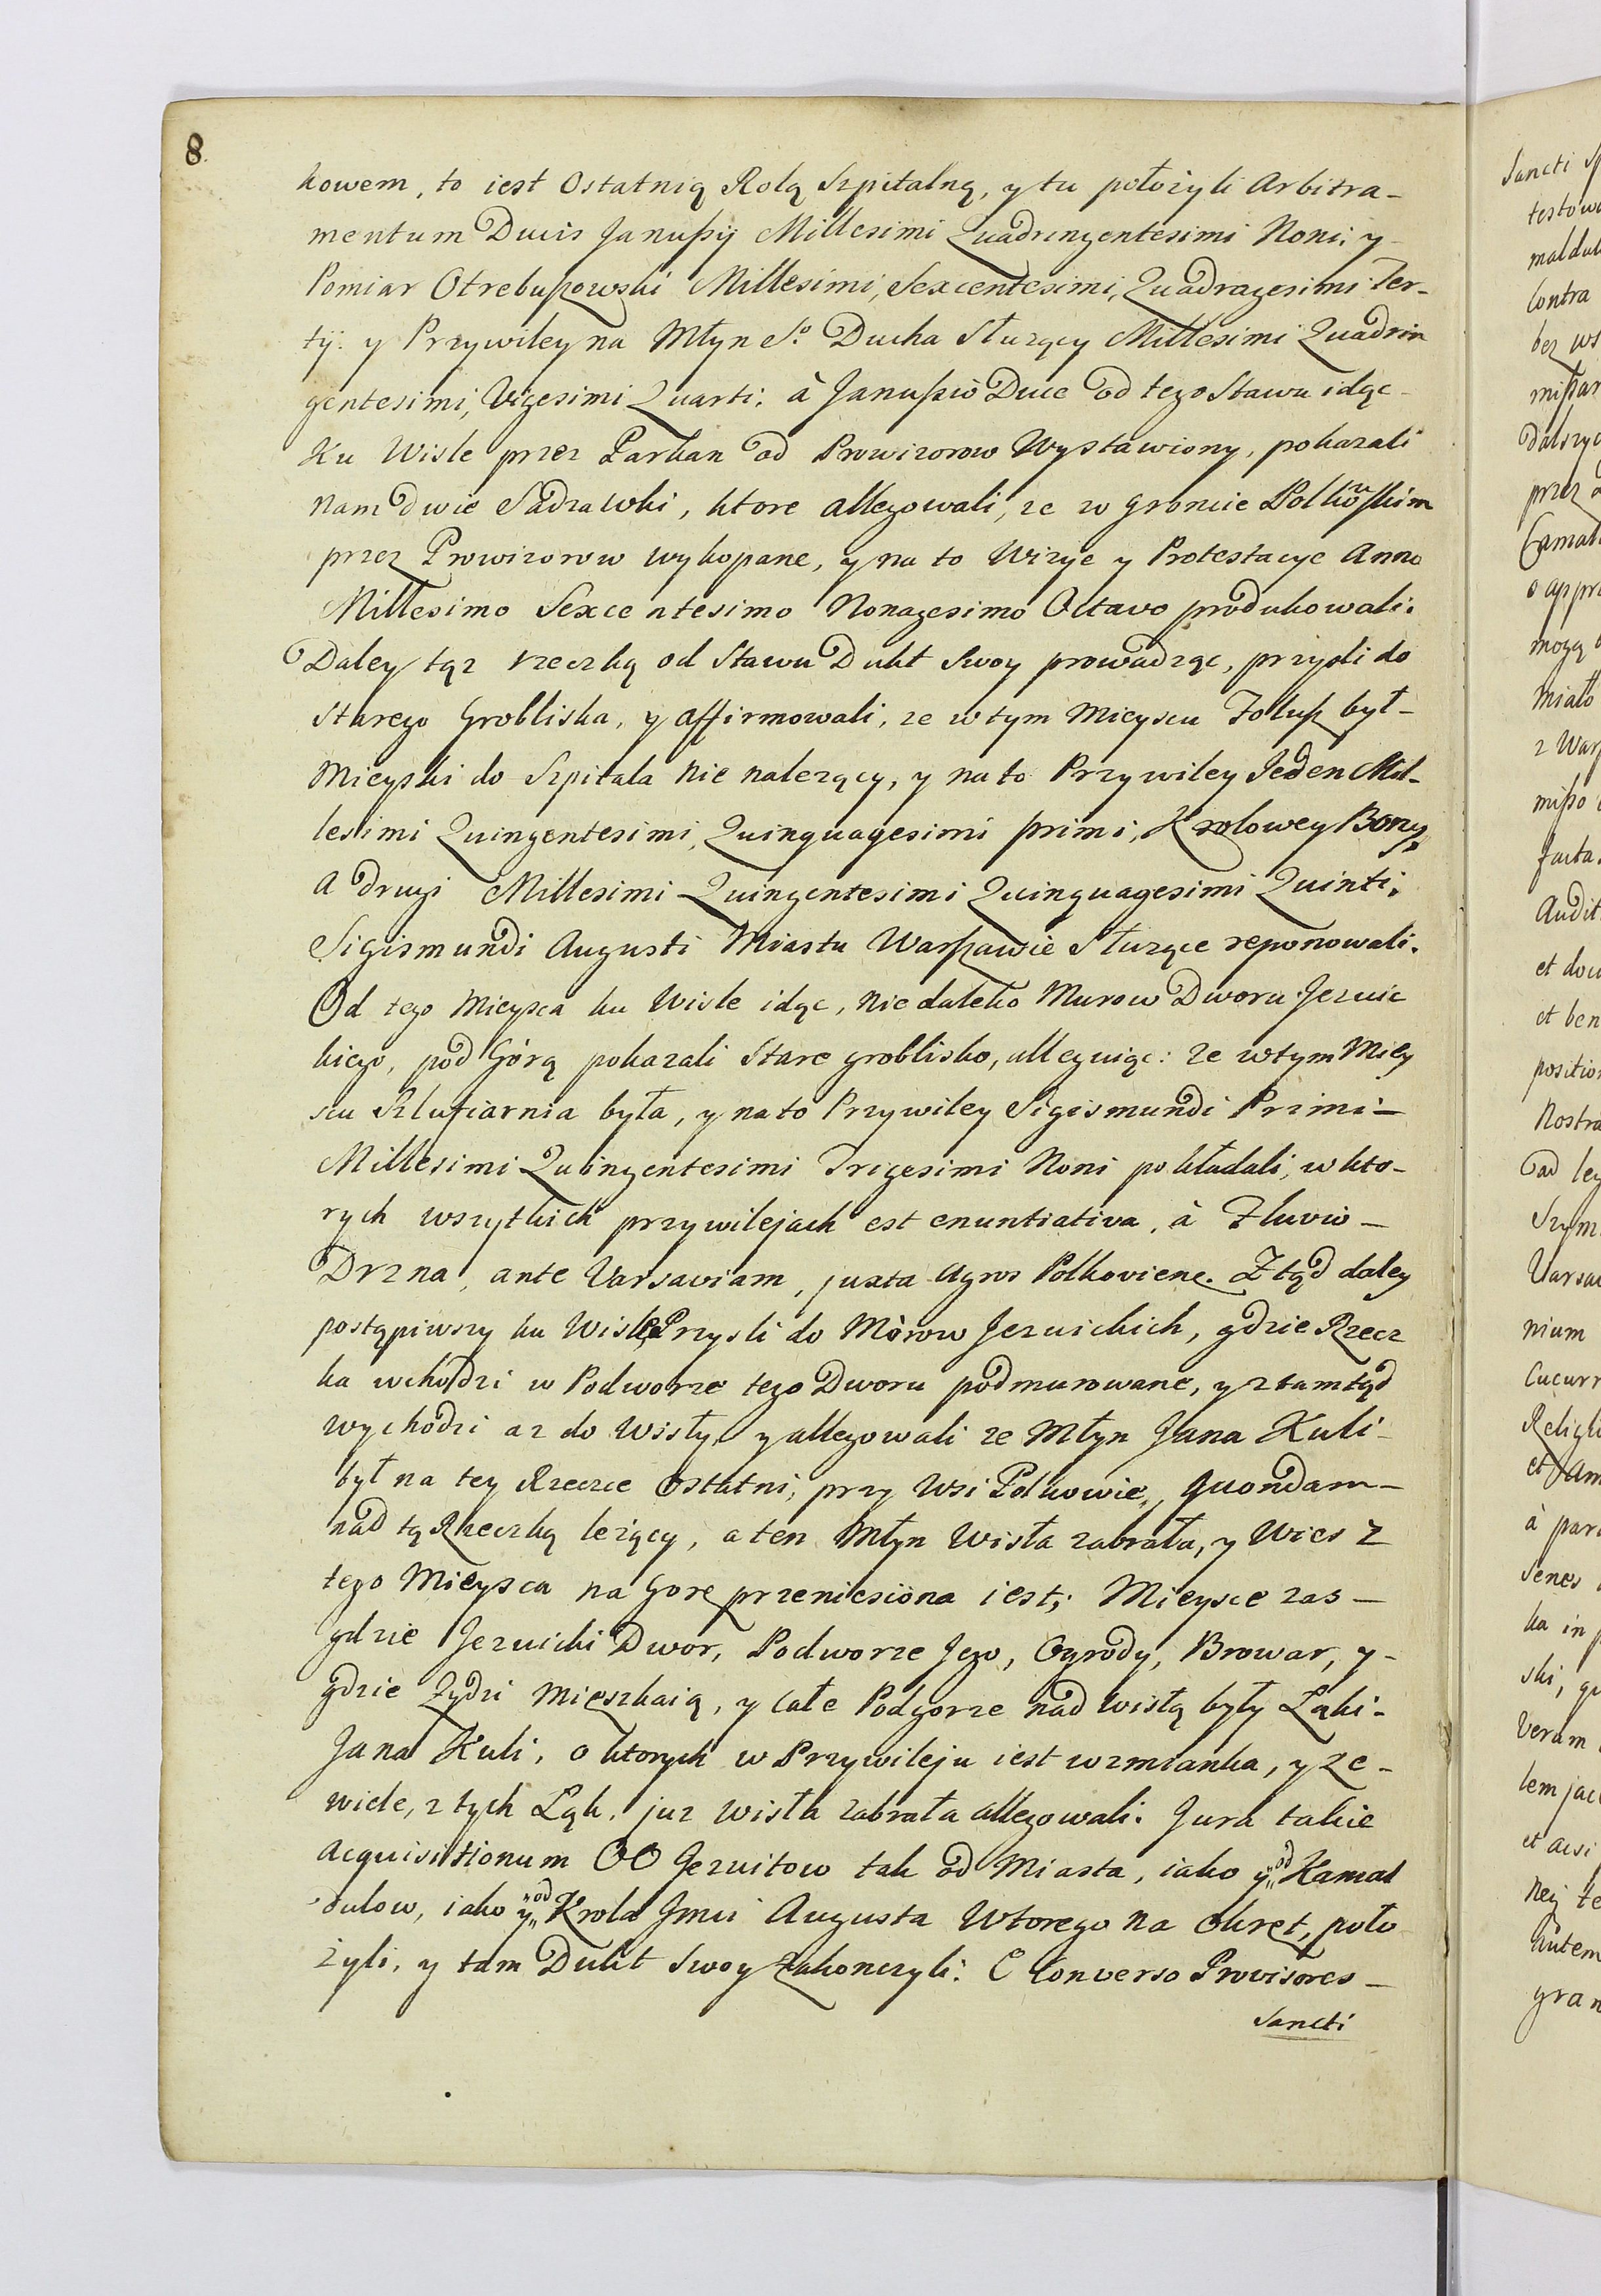 8.
kowem, to iest Ostatnią Rolą Szpitalną, y tu położyli Arbitra-
mentum Ducis Janußij Millesimi Quadringentesimi Noni; y-
Pomiar Otrębuszowski Millesimi, Sexcentesimi, Quadragesimi Ter-
tij: y Przywiley na Młyn So Ducha Służący Millesimi Quadrin
gentesimi, Vigesimi Quarti: à Janußio Duce od tego Stawu idąc-
Ku Wisle przez Parkan od Prowizorow Wystawiony, pokazali
nam dwie Sadzawki, ktore allegowali, ze w gruncie Polkowskim
przez Prowizorow wykopane, y na to Wizye y Protestacye Anno
Millesimo Sexcentesimo Nonagesimo Octavo produkowali.
Daley tąz rzeczką od Stawu Dukt Swoy prowadząc, przyszli do
Starego Grobliska, y affirmowali, ze w tym Mieyscu Foluß był-
Mieyski do Szpitala nie nalezący, y na to Przywiley Jeden Mil-
lesimi Quingentesimi, Quinquagesimi primi; Krolowey Bony,
A drugi Millesimi Quingentesimi Quinquagesimi Quinti,
Sigismundi Augusti Miastu Warßawie Służące reponowali.
Od tego Mieysca ku Wisle idąc, nie daleko Murow Dworu Jezuic
kiego, pod Górą pokazali Stare groblisko, alleguiąc: ze w tym Miey
scu Szlufiarnia była, y na to Przywiley Sigismundi Primi-
Millesimi Quingentesimi Trigesimi Noni pokładali, w kto-
rych wszytkich przywilejach est enuntiativa, à Fluvio-
Drzna, ante Varsaviam, juxta Agros Polkoviene. Ztąd daley
postąpiwszy ku Wisle Przysli do Mòrow Jezuickich, gdzie Rzecz
ka wchodzi w Podworze tego Dworu podmurowane, y ztamtąd
wychodzi az do Wisły, y allegowali ze Młyn Jana Kuli-
był na tey Rzeczce Ostatni, przy Wsi Polkowie, quondam-
nad tą Rzeczką leżący, a ten Młyn Wisła zabrała, y Wies z
tego Mieysca na Gore przeniesiona iest; Mieysce zas-
gdzie Jezuicki Dwor, Podworze Jego, Ogrody, Browar, y-
gdzie Żydzi Mieszkaią, y całe Podgorze nad Wisłą były Łąki-
Jana Kuli, o ktorych w Przywileju iest wzmianka, y ze-
wiele, z tych Łąk, juz Wisła zabrała allegowali. Jura takie
Acquisitionum OO Jezuitow tak od Miasta, iako y od Kamal
dułow, iako y od Krola Jmci Augusta Wtorego na Okręt, poło
żyli, y tam Dukt Swoy Zakonczyli: E Converso Provisores-
Sancti